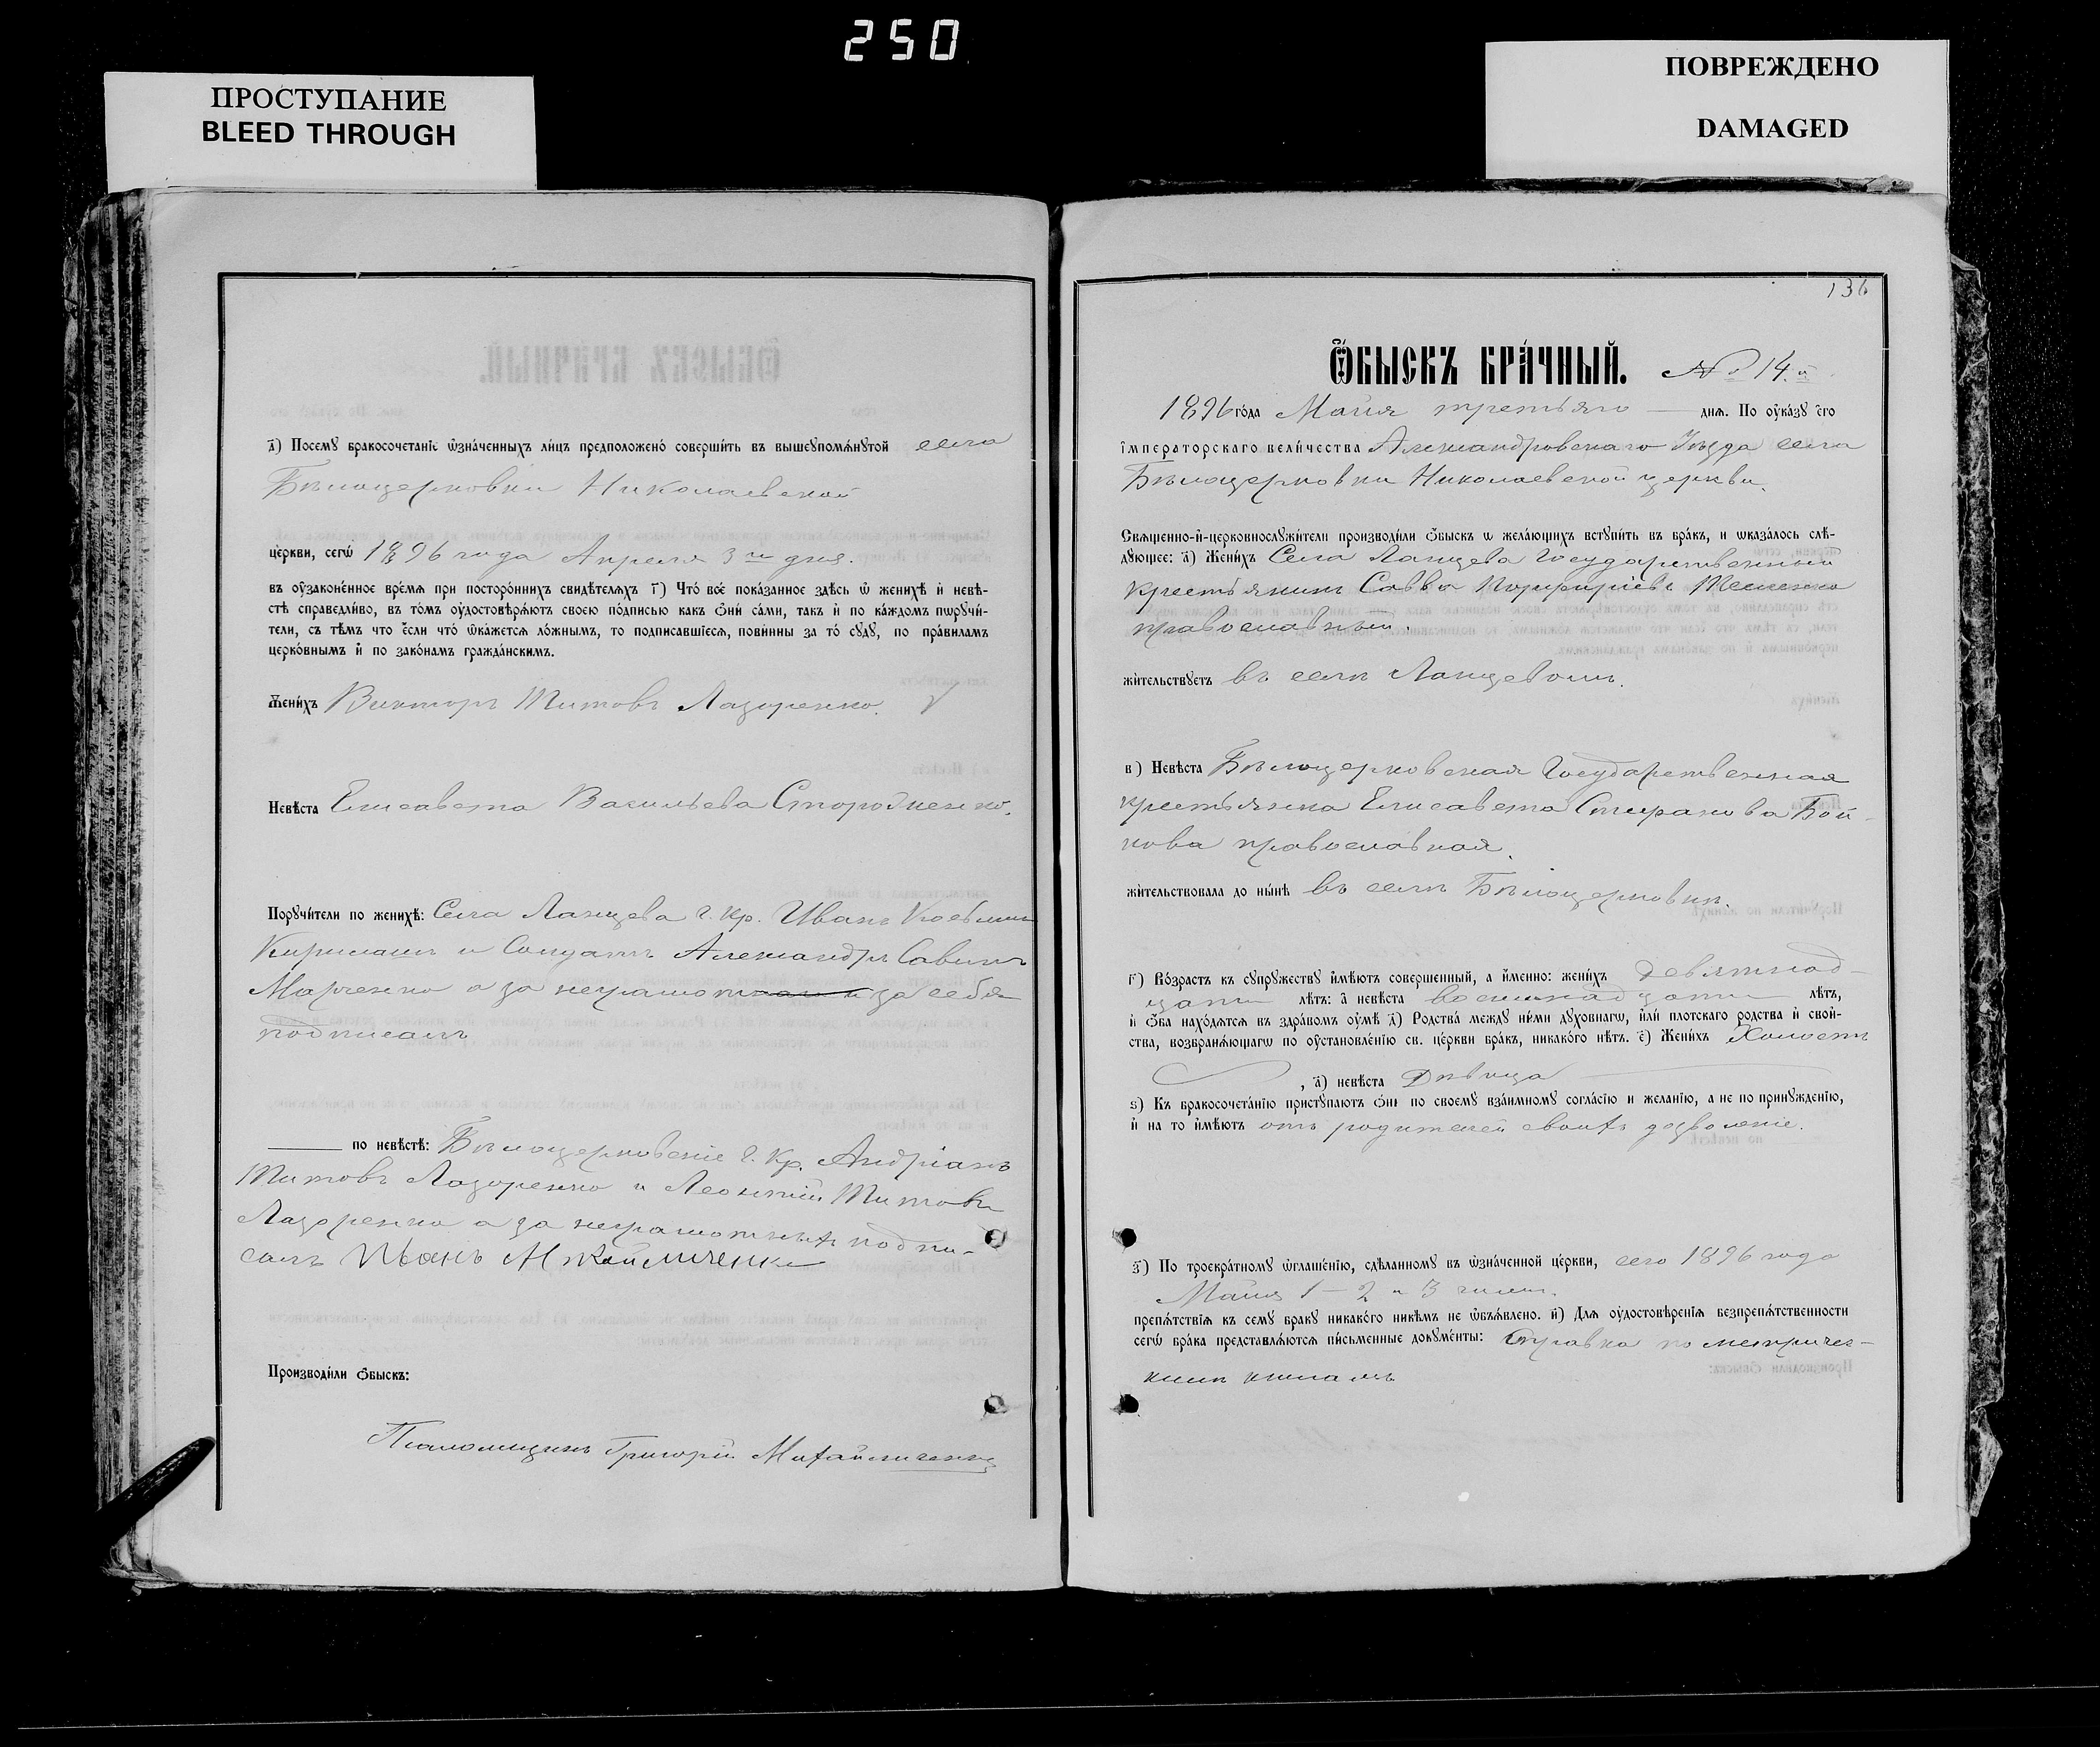 250
ПРОСТУПАНИЕ
BLEED THROUGH
ПОВРЕЖДЕНО
DAMAGED
а) Посему бракосочетаніе ѡзна́ченныхъ ли́цъ предположено́ соверши́ть въ вышеупомѧ́нутой села
Бѣлоцерковки Николаевской
це́ркви, сегѡ̀ 1896 года Апреля 3го дня.
въ оузако́ненное вре́мѧ при посторо́ннихъ свидѣ́телѧхъ г) Что́ все́ пока́занное здѣ́сь ѡ женихѣ̀ и҆ невѣ́-
стѣ справедли́во, въ то́мъ оудостовѣрѧ́ютъ своею по́дписью какъ ѻни́ са́ми, такъ и҆ по ка́ждомъ пѡручи́-
тели, съ тѣ́мъ что є҆́сли что́ ѡка́жетсѧ ло́жнымъ, то подписавшіесѧ, пови́нны за то́ суду, по пра́виламъ
церко́внымъ и҆ по зако́намъ гражда́нскимъ.
Жени́хъ Викторъ Титовъ Лазоренко.
Невѣста Елисавета Васильева Стороженко.
Поручи́тели по женихѣ̀: Села Ланцева г. кр. Иванъ
и Солдатъ Александръ Савинъ
Марченко а за неграмотн и за себя
подписалъ
по невѣстѣ: Бѣлоцерковскіе г. кр. Андріанъ
Титовъ Лазоренко и Леонтій Титовъ
Лазоренко а за неграмотныхъ подпи-
салъ
Производи́ли ѻбыскъ:
Псаломщикъ Григорій Михайличенко
136
Ѻбыскъ бра́чный. № 14.й
1896 го́да Майя третьяго дня. По оука́зу є҆го
і҆мператорскаго вели́чества Александровскаго Уѣзда села
Бѣлоцерковки Николаевской церкви.
Свѧще́нно-и҆-церковнослужи́тели производи́ли ѻбыскъ ѡ жела́ющихъ вступи́ть въ бра́къ, и ѡказа́лось слѣ́-
дующее: а) Жени́хъ Села Ланцева Государственный
крестьянинъ Савва Порфиріевъ
православный.
жи́тельствуетъ въ селѣ Ланцевомъ.
в) Невѣста Бѣлоцерковская Государственная
крестьянка Елисавета Стефанова Бой-
кова православная.
жи́тельствовала до ны́нѣ въ селѣ Бѣлоцерковкѣ.
г) Во́зрастъ къ супружеству и҆мѣ́ютъ совершенный, а и҆́менно: жени́хъ девятнад-
цати лѣтъ: а невѣста восемнадцати лѣтъ,
и҆ ѻба нахо́дѧтсѧ въ здра́вомъ оумѣ̀ д) Родства́ между ни́ми духовнагѡ, и҆ли́ плотскаго родства и҆ свой-
ства, возбранѧ́ющагѡ по оустановле́нію св. це́ркви бра́къ, никако́го нѣ́тъ. є) Жени́хъ Холостъ
, а) невѣста Дѣвица
ѕ) Къ бракосочета́нію приступа́ютъ ѻни по своему вза́имному согла́сію и желанію, а не по принужде́нію,
и҆ на то и҆мѣ́ютъ отъ родителей своихъ дозволеніе.
з) По троекра́тному ѡглаше́нію, сдѣ́ланному въ ѡзна́ченной це́ркви, сего 1896 года
Майя 1 – 2 и 3 чисел.
препѧ́тствіѧ къ сему браку никако́го никѣ́мъ не ѡбъѧ́влено. и҃) Для оудостовѣре́нія безпрепѧ́тственности
сегѡ̀ бра́ка представлѧ́ютсѧ пи́сьменные доку́ме́нты: Справка по метричес-
кимъ книгамъ